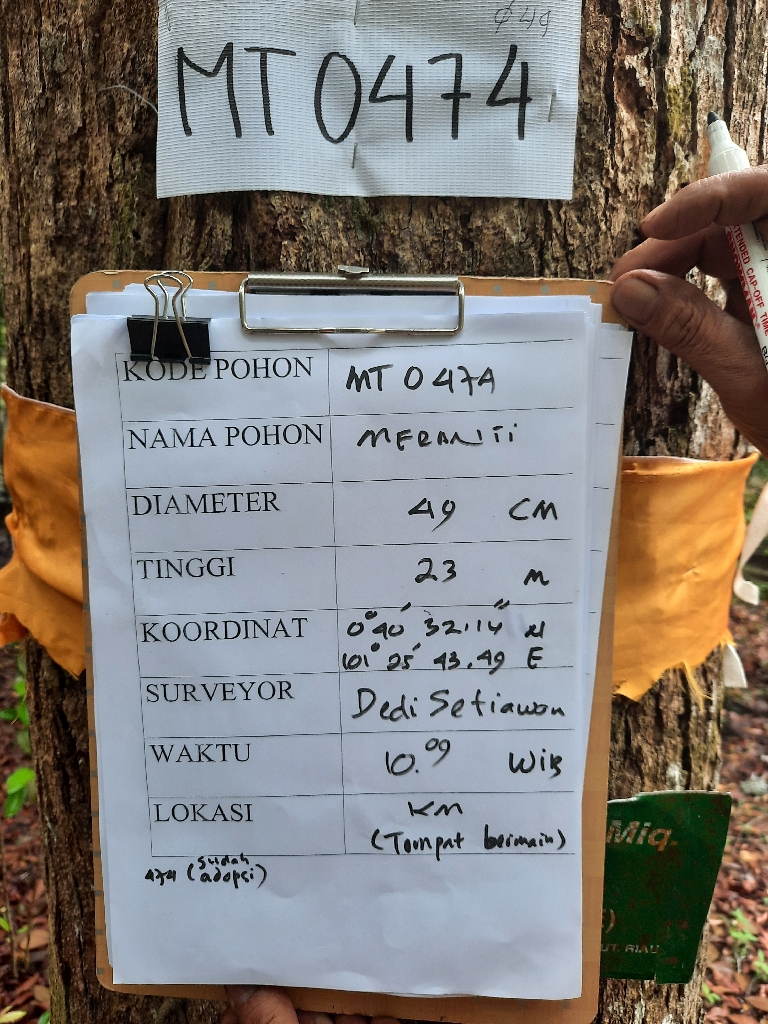 ø 49
MT 0474
KODE POHON MT 0474
NAMA POHON MERANTI
DIAMETER 49 CM
TINGGI 23 M
KOORDINAT 0° 40' 32.14" N
101° 25' 43.49 E
SURVEYOR Dedi Setiawan
WAKTU 10.09 WIB
LOKASI KM
(Tempat bermain)
474 (sudah adopsi)
Miq.
UT. RIAU
TENDED CAP-OFF TIME